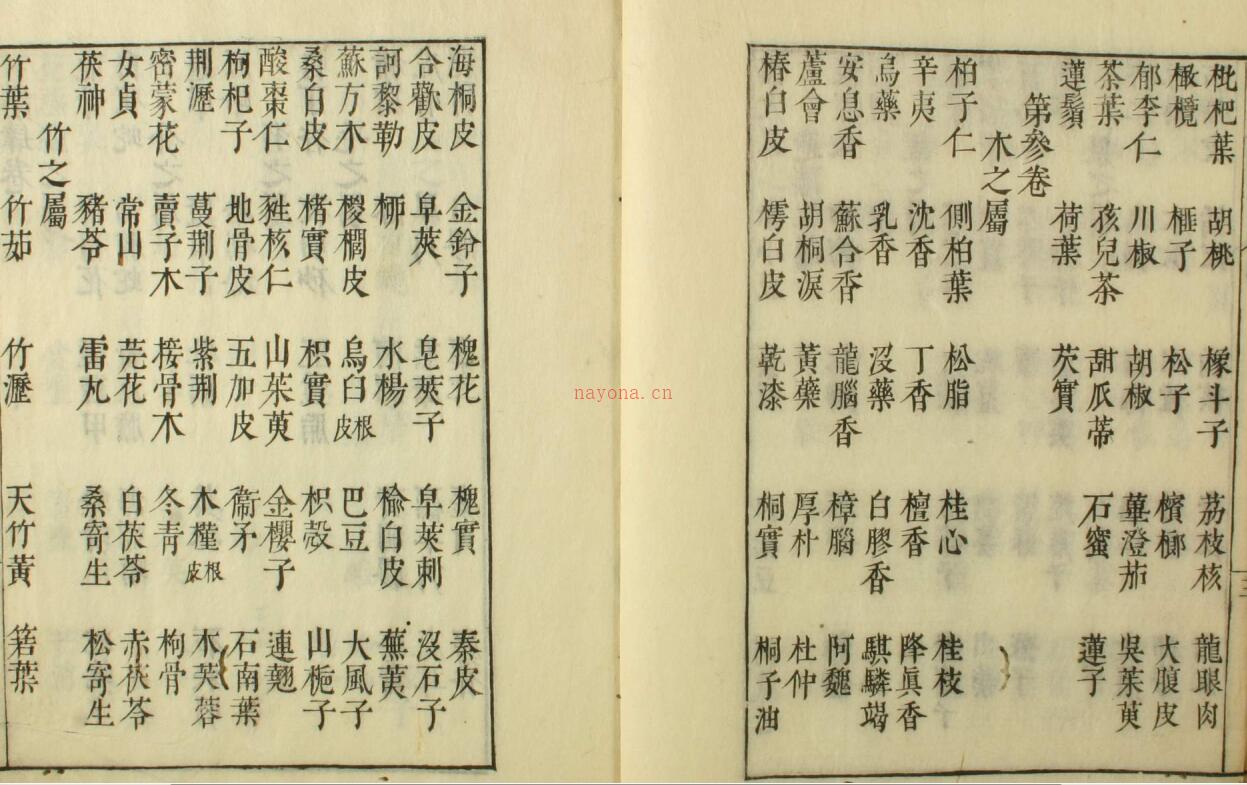 枇杷葉 胡桃 橡斗子 荔枝核 龍眼肉
橄欖 榧子 松子 檳榔 大腹皮
郁李仁 川椒 胡椒 蓽澄茄 吳茱萸
茶葉 孩兒茶 甜瓜蒂 石蜜 蓮子
蓮鬚 荷葉 芡實
第參卷
木之屬
柏子仁 側柏葉 松脂 桂心 桂枝
辛夷 沈香 丁香 檀香 降眞香
烏藥 乳香 沒藥 白膠香 騏驎竭
安息香 蘇合香 龍腦香 樟腦 阿魏
蘆會 胡桐淚 黃蘗 厚朴 杜仲
椿白皮 樗白皮 乾漆 桐實 桐子油
海桐皮 金鈴子 槐花 槐實 秦皮
合歡皮 皁莢 皂莢子 皁莢刺 沒石子
訶黎勒 柳 水楊 楡白皮 蕪荑
蘇方木 椶櫚皮 烏臼根皮 巴豆 大風子
桑白皮 楮實 枳實 枳殼 山梔子
酸棗仁 甤核仁 山茱萸 金櫻子 連翹
枸杞子 地骨皮 五加皮 衞矛 石南葉
荆瀝 蔓荆子 紫荆 木槿根皮 木芙蓉
密蒙花 賣子木 接骨木 冬靑 枸骨
女貞 常山 芫花 白茯苓 赤茯苓
茯神 豬苓 雷丸 桑寄生 松寄生
竹之屬
竹葉 竹茹 竹瀝 天竹黃 箬葉
nayona.cn